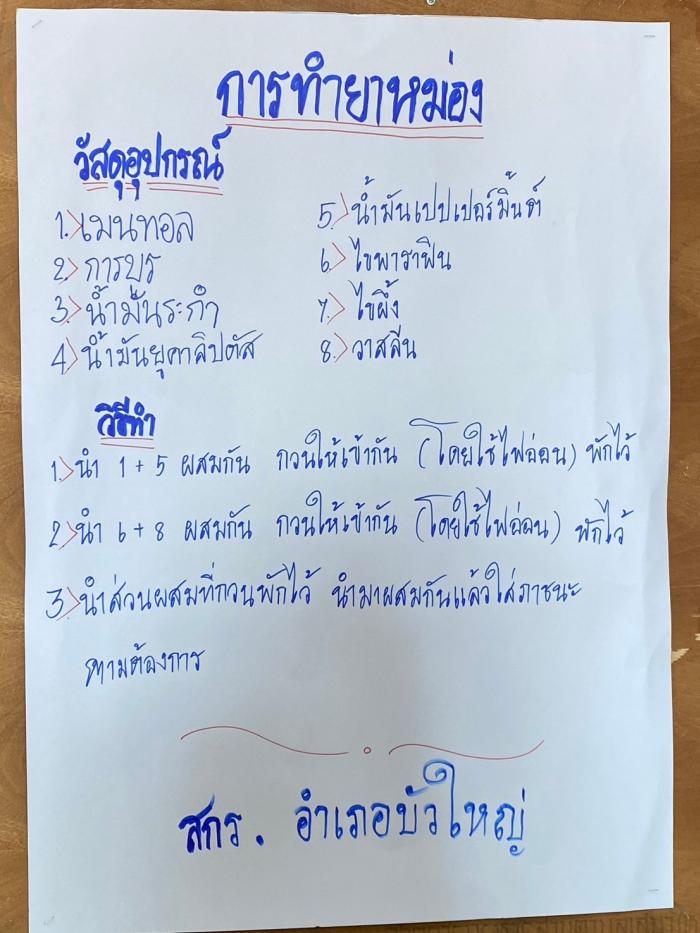 การทำยาหม่อง
วัสดุอุปกรณ์
1. เมนทอล
2. การบูร
3. น้ำมันระกำ
4. น้ำมันยูคาลิปตัส
5. น้ำมันเปปเปอร์มิ้นต์
6. ไขพาราฟิน
7. ไขผึ้ง
8. วาสลีน
วิธีทำ
1. นำ 1 + 5 ผสมกัน กวนให้เข้ากัน (โดยใช้ไฟอ่อน) พักไว้
2. นำ 6 + 8 ผสมกัน กวนให้เข้ากัน (โดยใช้ไฟอ่อน) พักไว้
3. นำส่วนผสมที่กวนพักไว้ นำมาผสมกันแล้วใส่ภาชนะ
ตามต้องการ
สกร. อำเภอบัวใหญ่